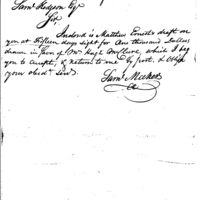 Saml Hodgson Esqr
Sir,
Inclosed is Matthew Ernests draft on
you at fifteen days sight for One thousand Dollars
drawn in favor of Mr Hugh McIllvane, which I beg
you to accept, & return to me by post, & oblige
your obedt Servt
Saml Meeker